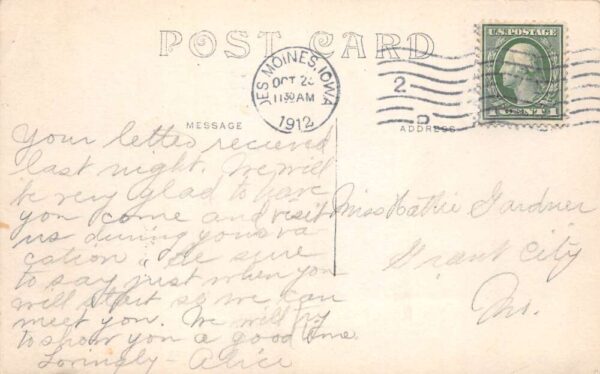 POST CARD
U.S. POSTAGE
DES MOINES, IOWA
OCT 2
11 30 AM
1912
2
D
1 CENT 1
MESSAGE
ADDRESS
Your letter recieved
last night. We will
be very glad to have
you come and visit
us during your va
cation. Be sure
to say just when you
will start so we can
meet you. We will try
to show you a good time.
Lovingly - Alice
Miss Kathie Gardner
Grant City
Mo.